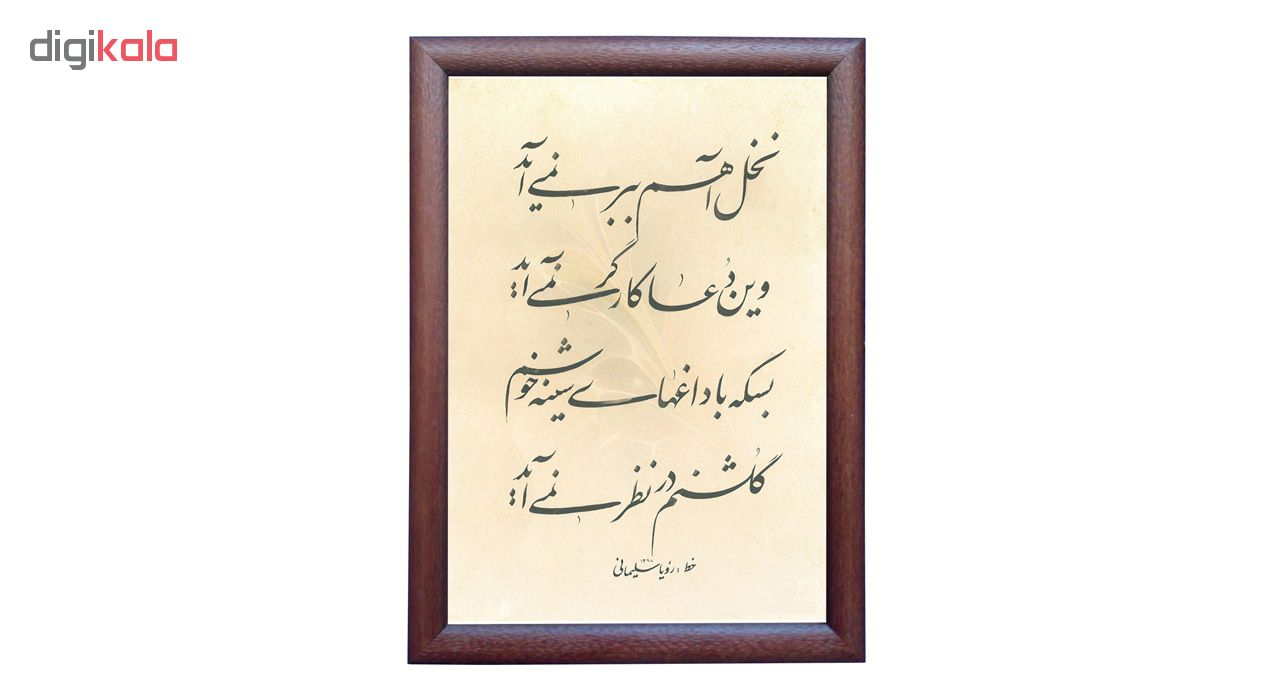 digikala
نخل آهم ببر نمی آید
وین دُعا کارگر نمی آید
بسکه با داغهای سینه خوشم
گلشنم در نظر نمی آید
خط : رؤیا سلیمانی